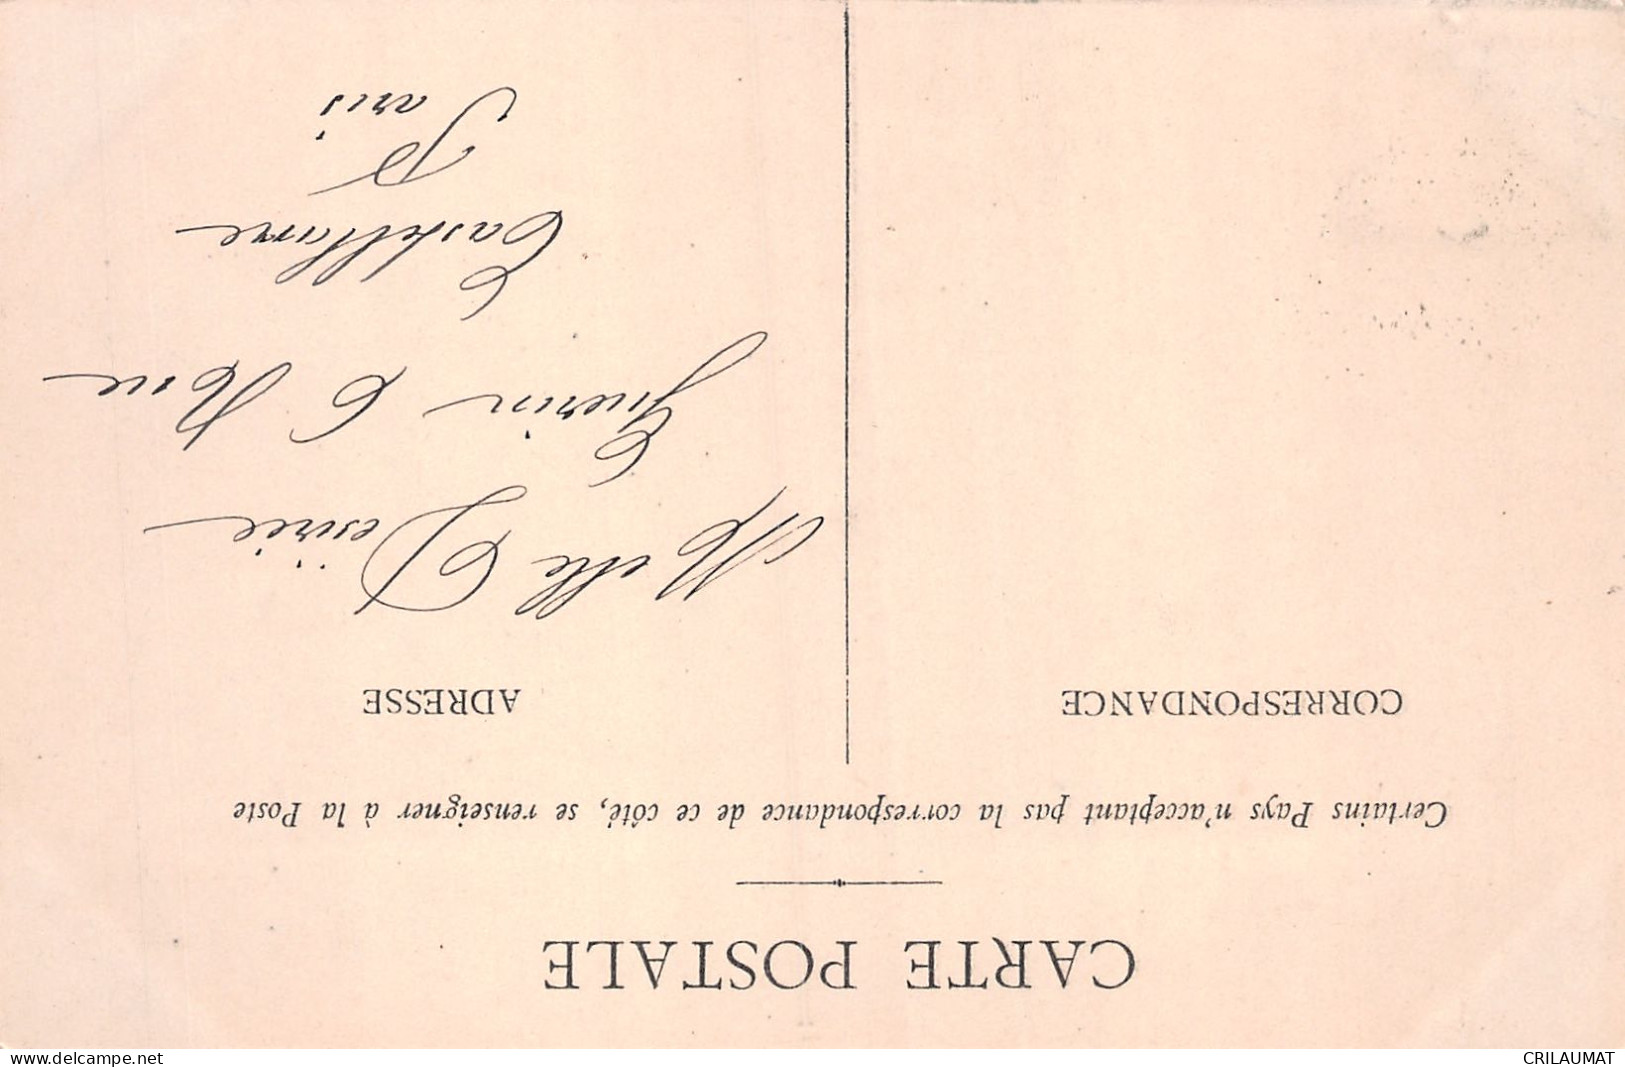 CARTE POSTALE
Certains Pays n'acceptant pas la correspondance de ce côté, se renseigner à la Poste
CORRESPONDANCE
ADRESSE
Melle Désirée
Guerin 6 Rue
Castellane
Paris
www.delcampe.net
CRILAUMAT